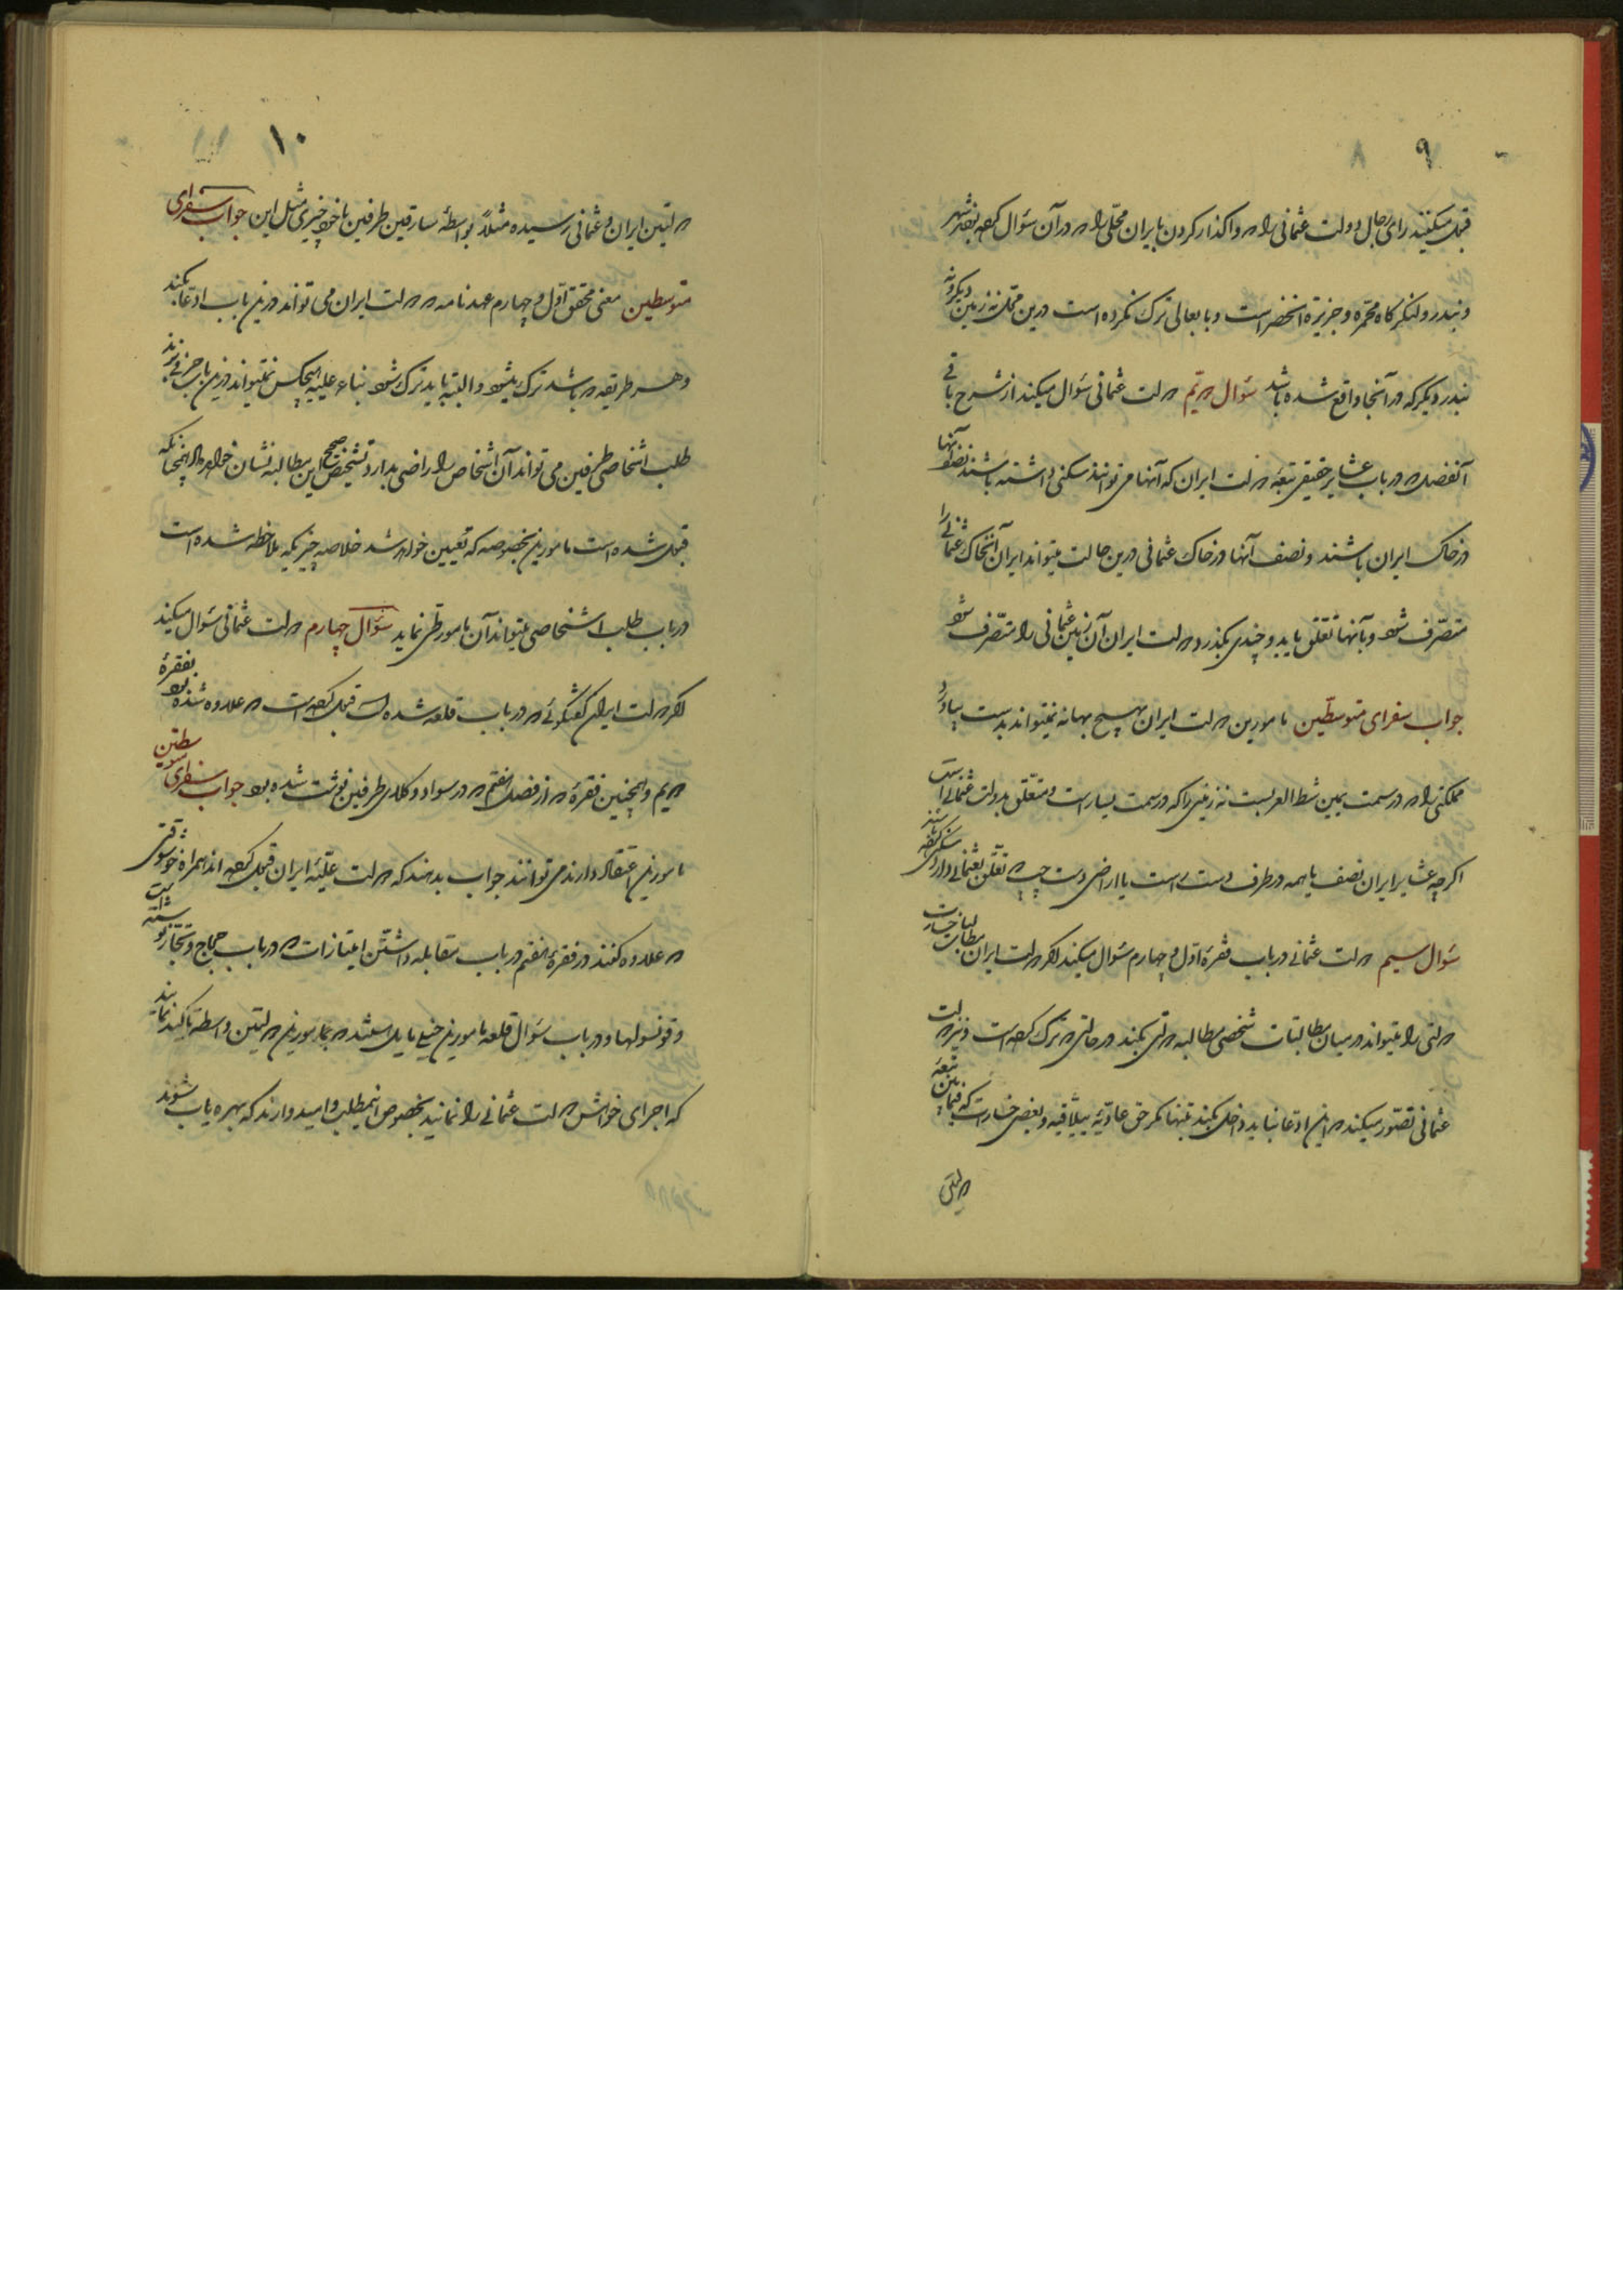 ۹
قبول میکنند رای رجال دولت عثمانی را در واکذار کردن بایران محلی را که در آن سؤال کرده بغیر شهر
و بندر و لنگرگاه محمره و جزیرة الخضر است و بابعالی ترک نکرده است درین محل نه زمین دیگر و نه
بندر دیگر که در آنجا واقع شده باشد سؤال دویم دولت عثمانی سؤال میکند از شرح باقی
آنفصل که در باب عشایر حقیقی تبعه دولت ایران که آنها می توانند سکنی داشته باشند نصف آنها
در خاک ایران باشند و نصف آنها در خاک عثمانی درین حالت میتواند ایران آنخاک عثمانی را
متصرف شود و بآنها تعلق یابد و چندی بگذرد دولت ایران آن زمین عثمانی را متصرف شود
جواب سفرای متوسطین مامورین دولت ایران بهیچ بهانه نمیتواند بدست بیاورد
مملکتی را که در سمت یمین شط العربست نه زمینی را که در سمت یسار است و متعلق بدولت عثمانی است
اکرچه عشایر ایران نصف یا همه در طرف دست راست یا اراضی دست چپ که تعلق بعثمانی دارد سکنی کرده باشند
سؤال سیم دولت عثمانی در باب فقره اول و چهارم سؤال میکند اکر دولت ایران مطالبات خسارت
دولتی را میتواند در میان مطالبات شخصی مطالبه دولتی بکند در حالتی که ترک کرده است و نیز دولت
عثمانی تصور میکند که این ادعا نباید داخل بکند تنها مکر حق عادیه ییلاقیه و بعضی خسارت که فیمابین تبعه
دولتی
۱۰
دولتین ایران و عثمانی رسیده مثلاً بواسطه سارقین طرفین یا خود چیزی مثل این جواب سفرای
متوسطین معنی محقق اول و چهارم عهدنامه که دولت ایران می تواند درین باب ادعا بکند
و هر طریقه که باشد ترک میشود و البته باید ترک شود بناء علیه هیچکس نمیتواند درین باب حرفی بزند
طلب اشخاصی طرفین می تواند آن اشخاص را راضی بدارد تشخیص صحیح این مطالبه نشان خواهد داد چنانکه
قبول شده است مامورین مخصوصه که تعیین خواهد شد خلاصه چیزیکه ملاحظه شده است
در باب طلب اشخاصی میتواند آن مامور طی نماید سؤال چهارم دولت عثمانی سؤال میکند
اکر دولت ایران گفتگوئی که در باب قلعه شده است قبول کرده است که علاوه شده بود بفقره
دویم و همچنین فقره که از فصل هفتم که در سواد وکلای طرفین فوت شده بود جواب سفرای متوسطین
مامورین اعتقاد دارند می توانند جواب بدهند که دولت علیه ایران قبول کرده اند همراه خوشوقتی
که علاوه کنند در فقره هفتم در باب مقابله داشتن امتیازات که در باب حجاج و تجار
و قونسولها و در باب سؤال قلعه مامورین خیلی مایل هستند که بمامورین دولتین واسطه تاکید نمایند
که اجرای خواهش دولت عثمانی را نمایند بخصوص اینمطلب و امیدوارند که بهره یاب شوند